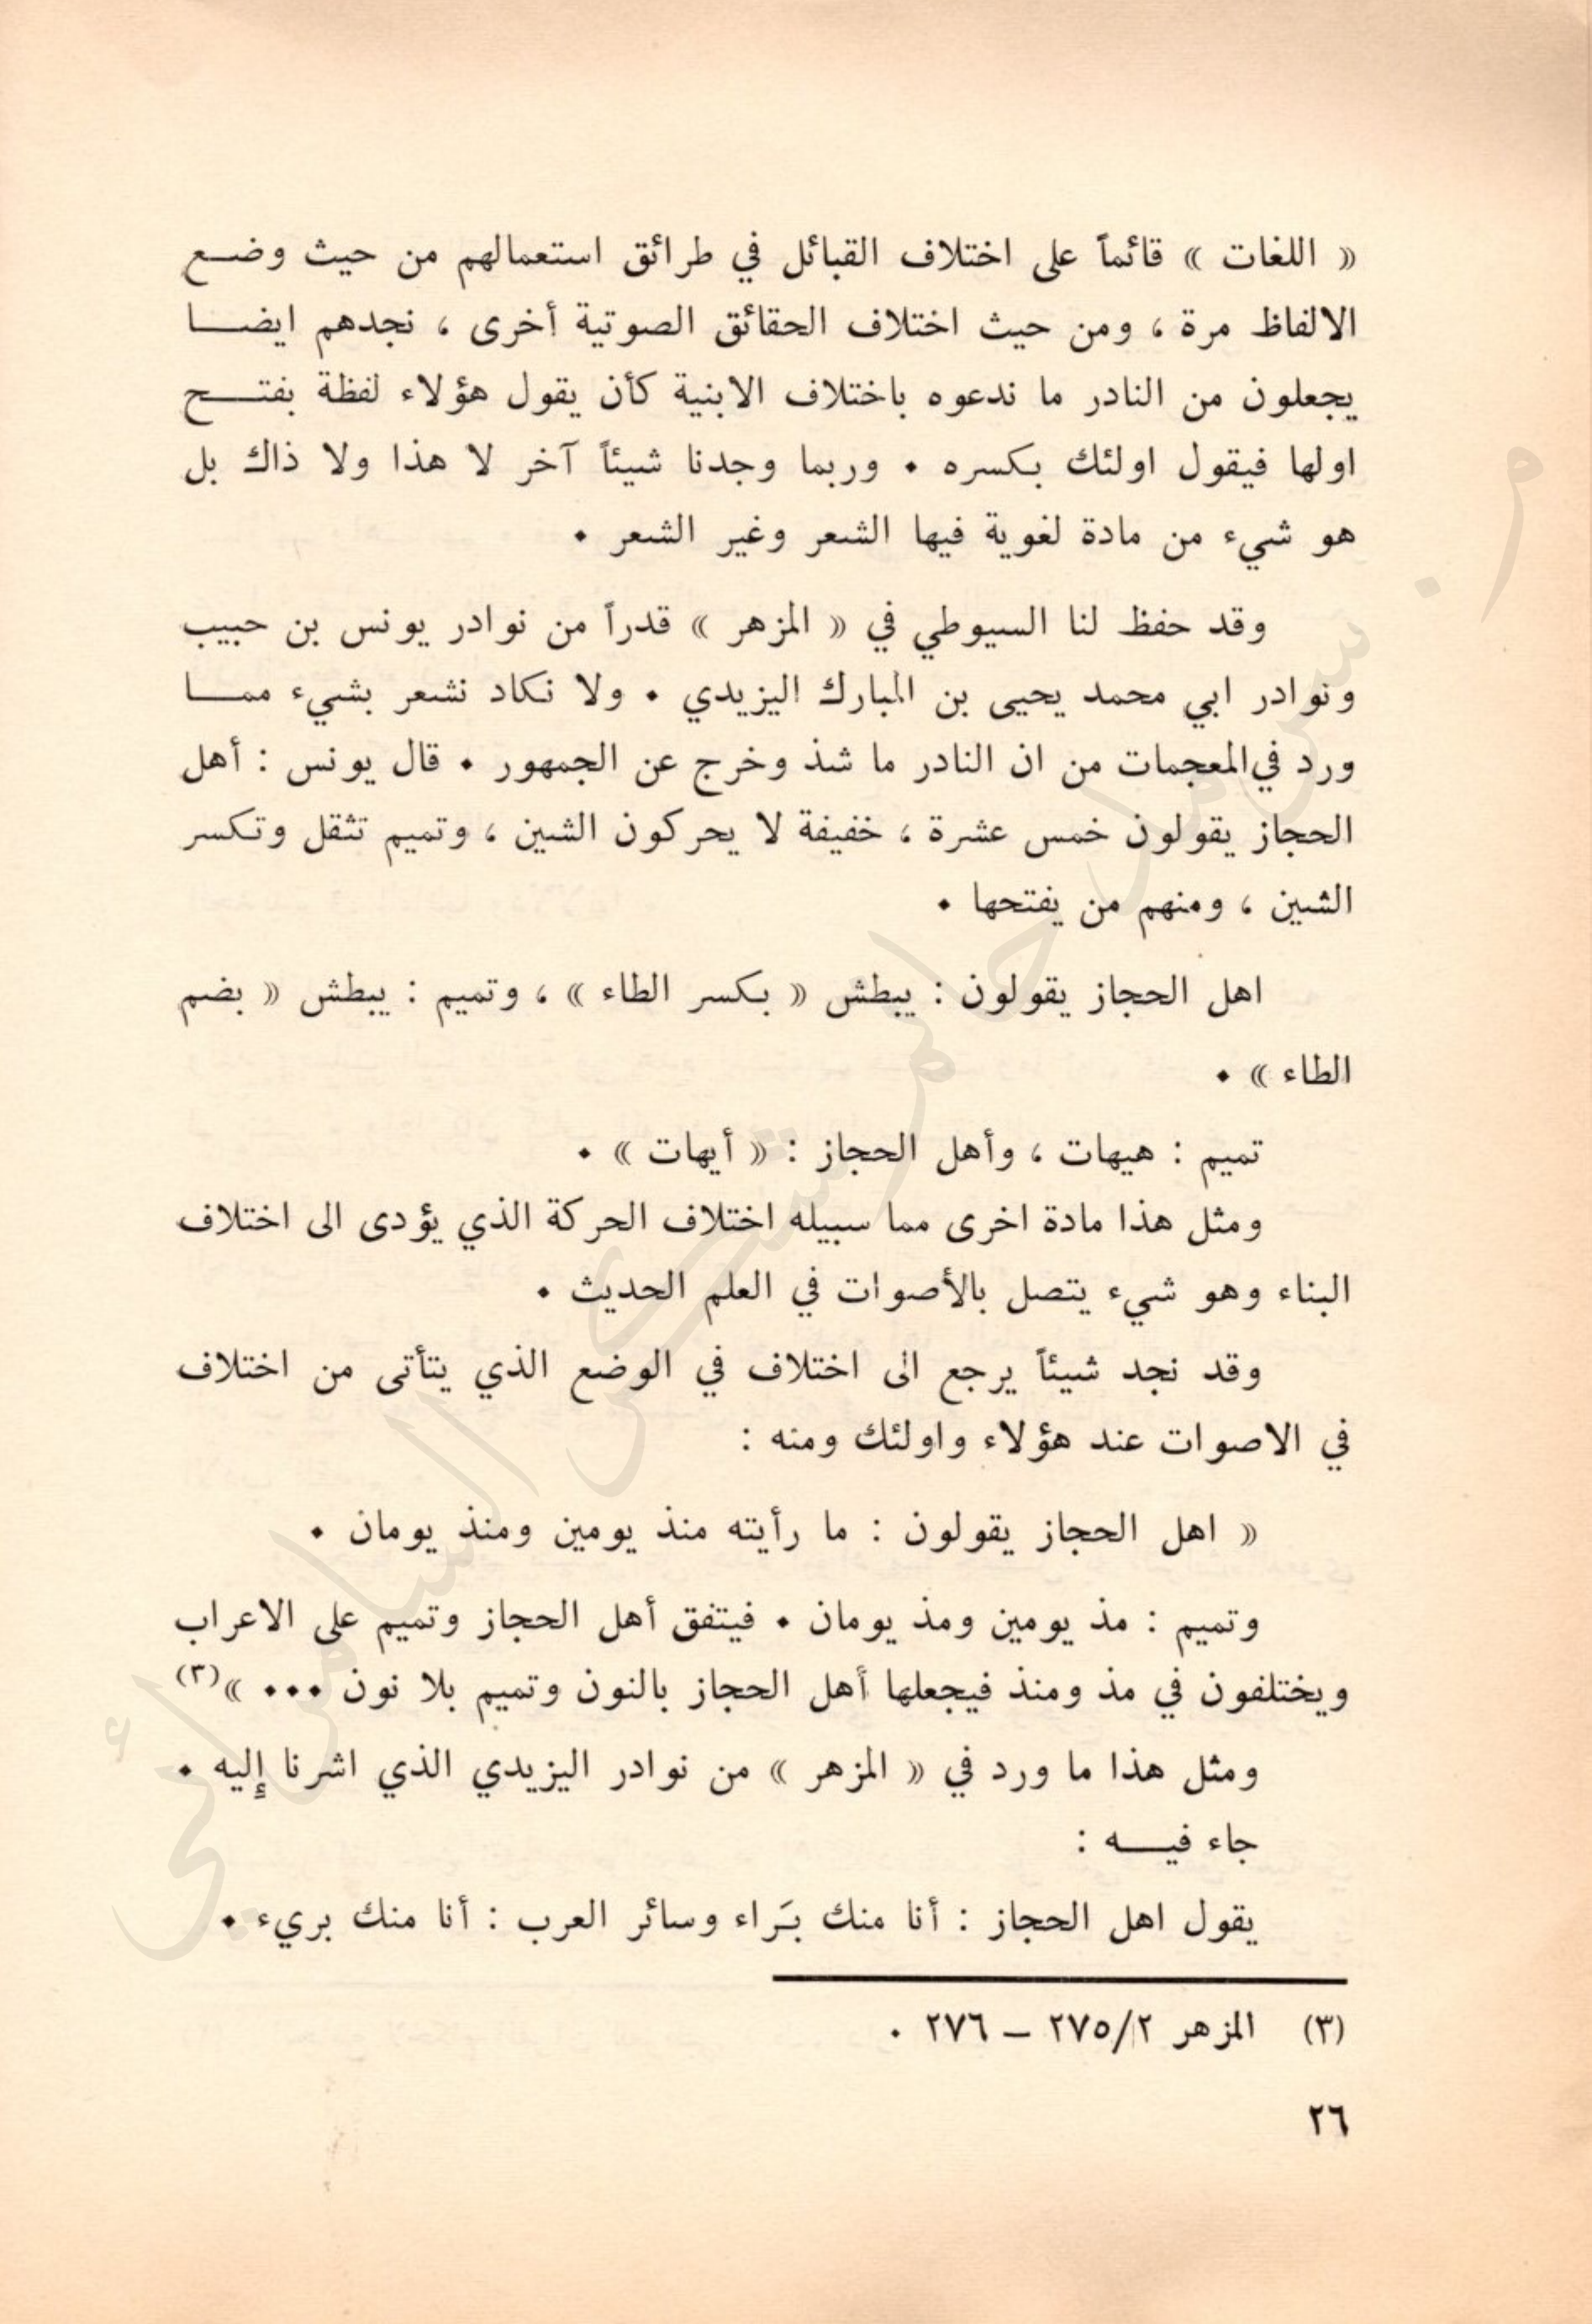 « اللغات » قائماً على اختلاف القبائل في طرائق استعمالهم من حيث وضع
الالفاظ مرة ، ومن حيث اختلاف الحقائق الصوتية أخرى ، نجدهم ايضا
يجعلون من النادر ما ندعوه باختلاف الابنية كأن يقول هؤلاء لفظة بفتح
اولها فيقول اولئك بكسره • وربما وجدنا شيئاً آخر لا هذا ولا ذاك بل
هو شيء من مادة لغوية فيها الشعر وغير الشعر •
وقد حفظ لنا السيوطي في « المزهر » قدراً من نوادر يونس بن حبيب
ونوادر ابي محمد يحيى بن المبارك اليزيدي • ولا نكاد نشعر بشيء مما
ورد في المعجمات من ان النادر ما شذ وخرج عن الجمهور • قال يونس : أهل
الحجاز يقولون خمس عشرة ، خفيفة لا يحركون الشين ، وتميم تثقل وتكسر
الشين ، ومنهم من يفتحها •
اهل الحجاز يقولون : يبطش « بكسر الطاء » ، وتميم : يبطش « بضم
الطاء » •
تميم : هيهات ، وأهل الحجاز : « أيهات » •
ومثل هذا مادة اخرى مما سبيله اختلاف الحركة الذي يؤدى الى اختلاف
البناء وهو شيء يتصل بالأصوات في العلم الحديث •
وقد نجد شيئاً يرجع الى اختلاف في الوضع الذي يتأتى من اختلاف
في الاصوات عند هؤلاء واولئك ومنه :
« اهل الحجاز يقولون : ما رأيته منذ يومين ومنذ يومان •
وتميم : مذ يومين ومذ يومان • فيتفق أهل الحجاز وتميم على الاعراب
ويختلفون في مذ ومنذ فيجعلها أهل الحجاز بالنون وتميم بلا نون ••• »(٣)
ومثل هذا ما ورد في « المزهر » من نوادر اليزيدي الذي اشرنا إليه •
جاء فيه :
يقول اهل الحجاز : أنا منك بَراء وسائر العرب : أنا منك بريء •
(٣) المزهر ٢/‏٢٧٥ – ٢٧٦ •
٢٦